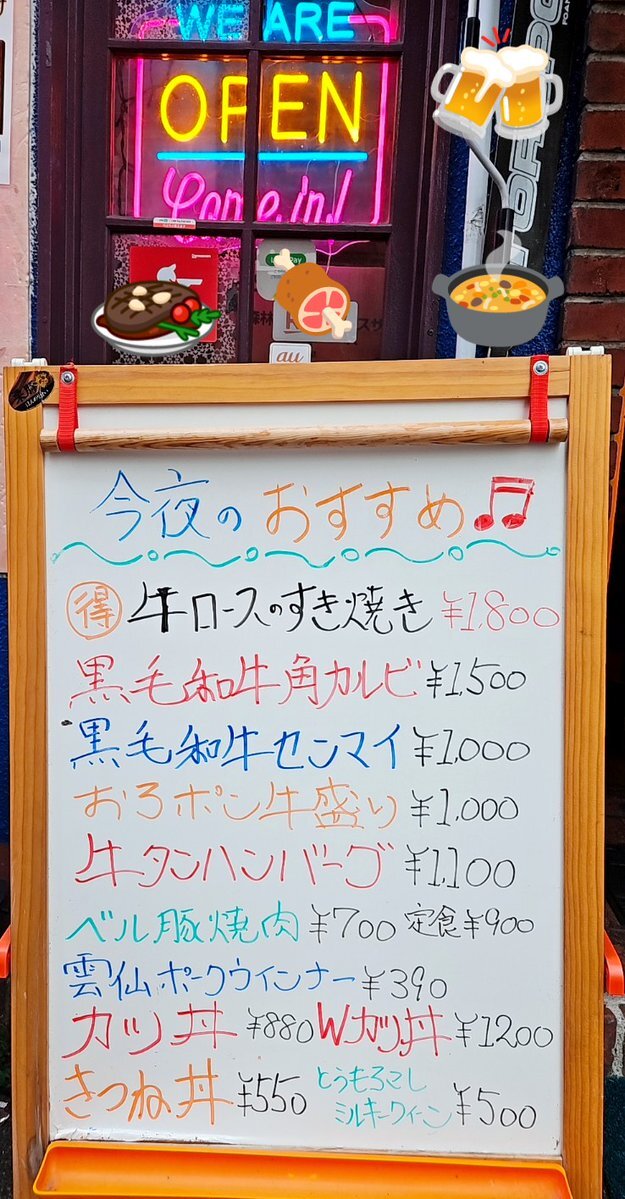 WE ARE
OPEN
Come in!
au
今夜のおすすめ
得 牛ロースのすき焼き ¥1,800
黒毛和牛角カルビ ¥1,500
黒毛和牛センマイ ¥1,000
おろポン牛盛り ¥1,000
牛タンハンバーグ ¥1,100
ベル豚焼肉 ¥700 定食¥900
雲仙ポークウインナー ¥390
カツ丼 ¥880 Wカツ丼 ¥1200
きつね丼 ¥550 とうもろこし
ミルキークィーン ¥500